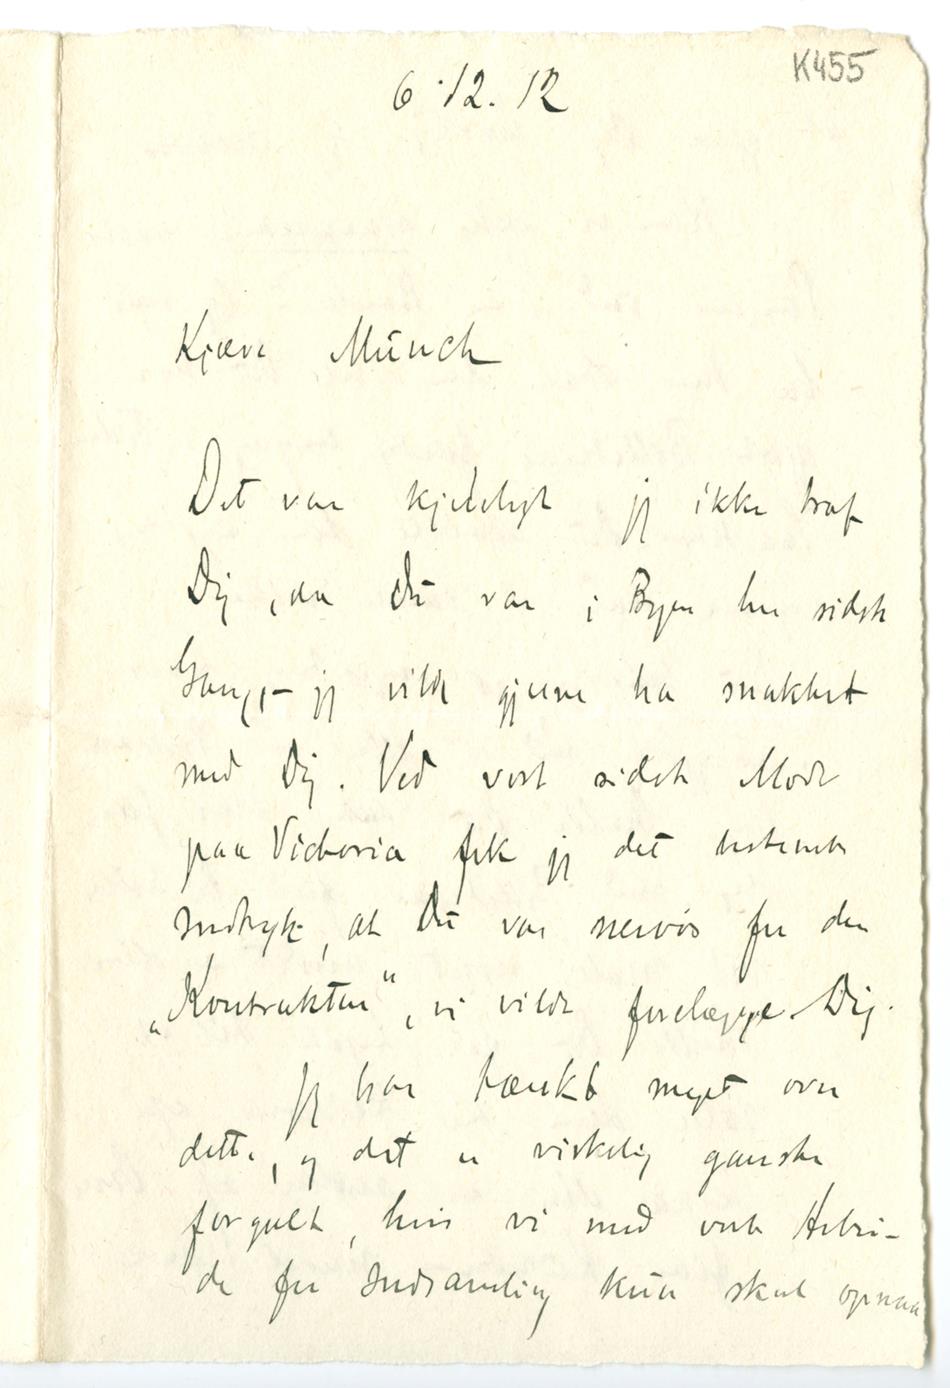 K455
6·12.12
Kjære Munch
Det var kjedeligt jeg ikke traf
Dig, da Du var i Byen her sidste
Gang, – jeg vilde gjerne ha snakket
med Dig. Ved vort sidste Møde
paa Victoria fik jeg det bestemte
Indtryk, at Du var nervøs for den
„Kontrakten", vi vilde forelægge Dig.
Jeg har tænkt meget over
dette, og det er virkelig ganske
forgalt, hvis vi med vort Arbei-
de for Indsamling kun skal opnaa